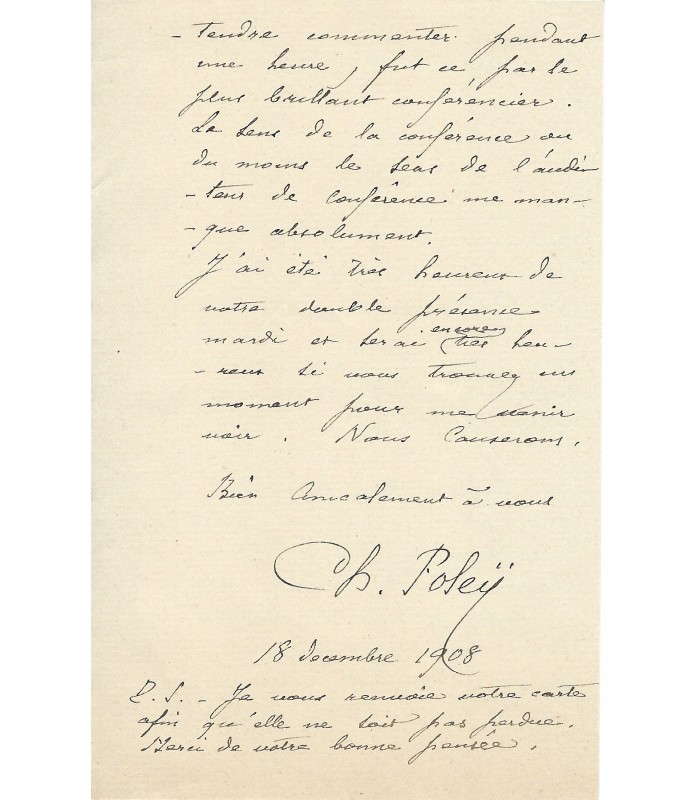 - tendre commenter pendant
une heure, fut ce par le
plus brillant conférencier.
Le sens de la conférence ou
du moins le sens de l'audi-
- teur de conférence me man-
- que absolument.
J'ai été très heureux de
votre double présence
mardi et serai encore très heu-
- reux si vous trouvez un
moment pour me venir
voir. Nous Causerons.
Bien Amicalement à vous
Ch. Foleÿ
18 decembre 1908
P. S. - Je vous renvoie votre carte
afin qu'elle ne soit pas perdue.
Merci de votre bonne pensée.